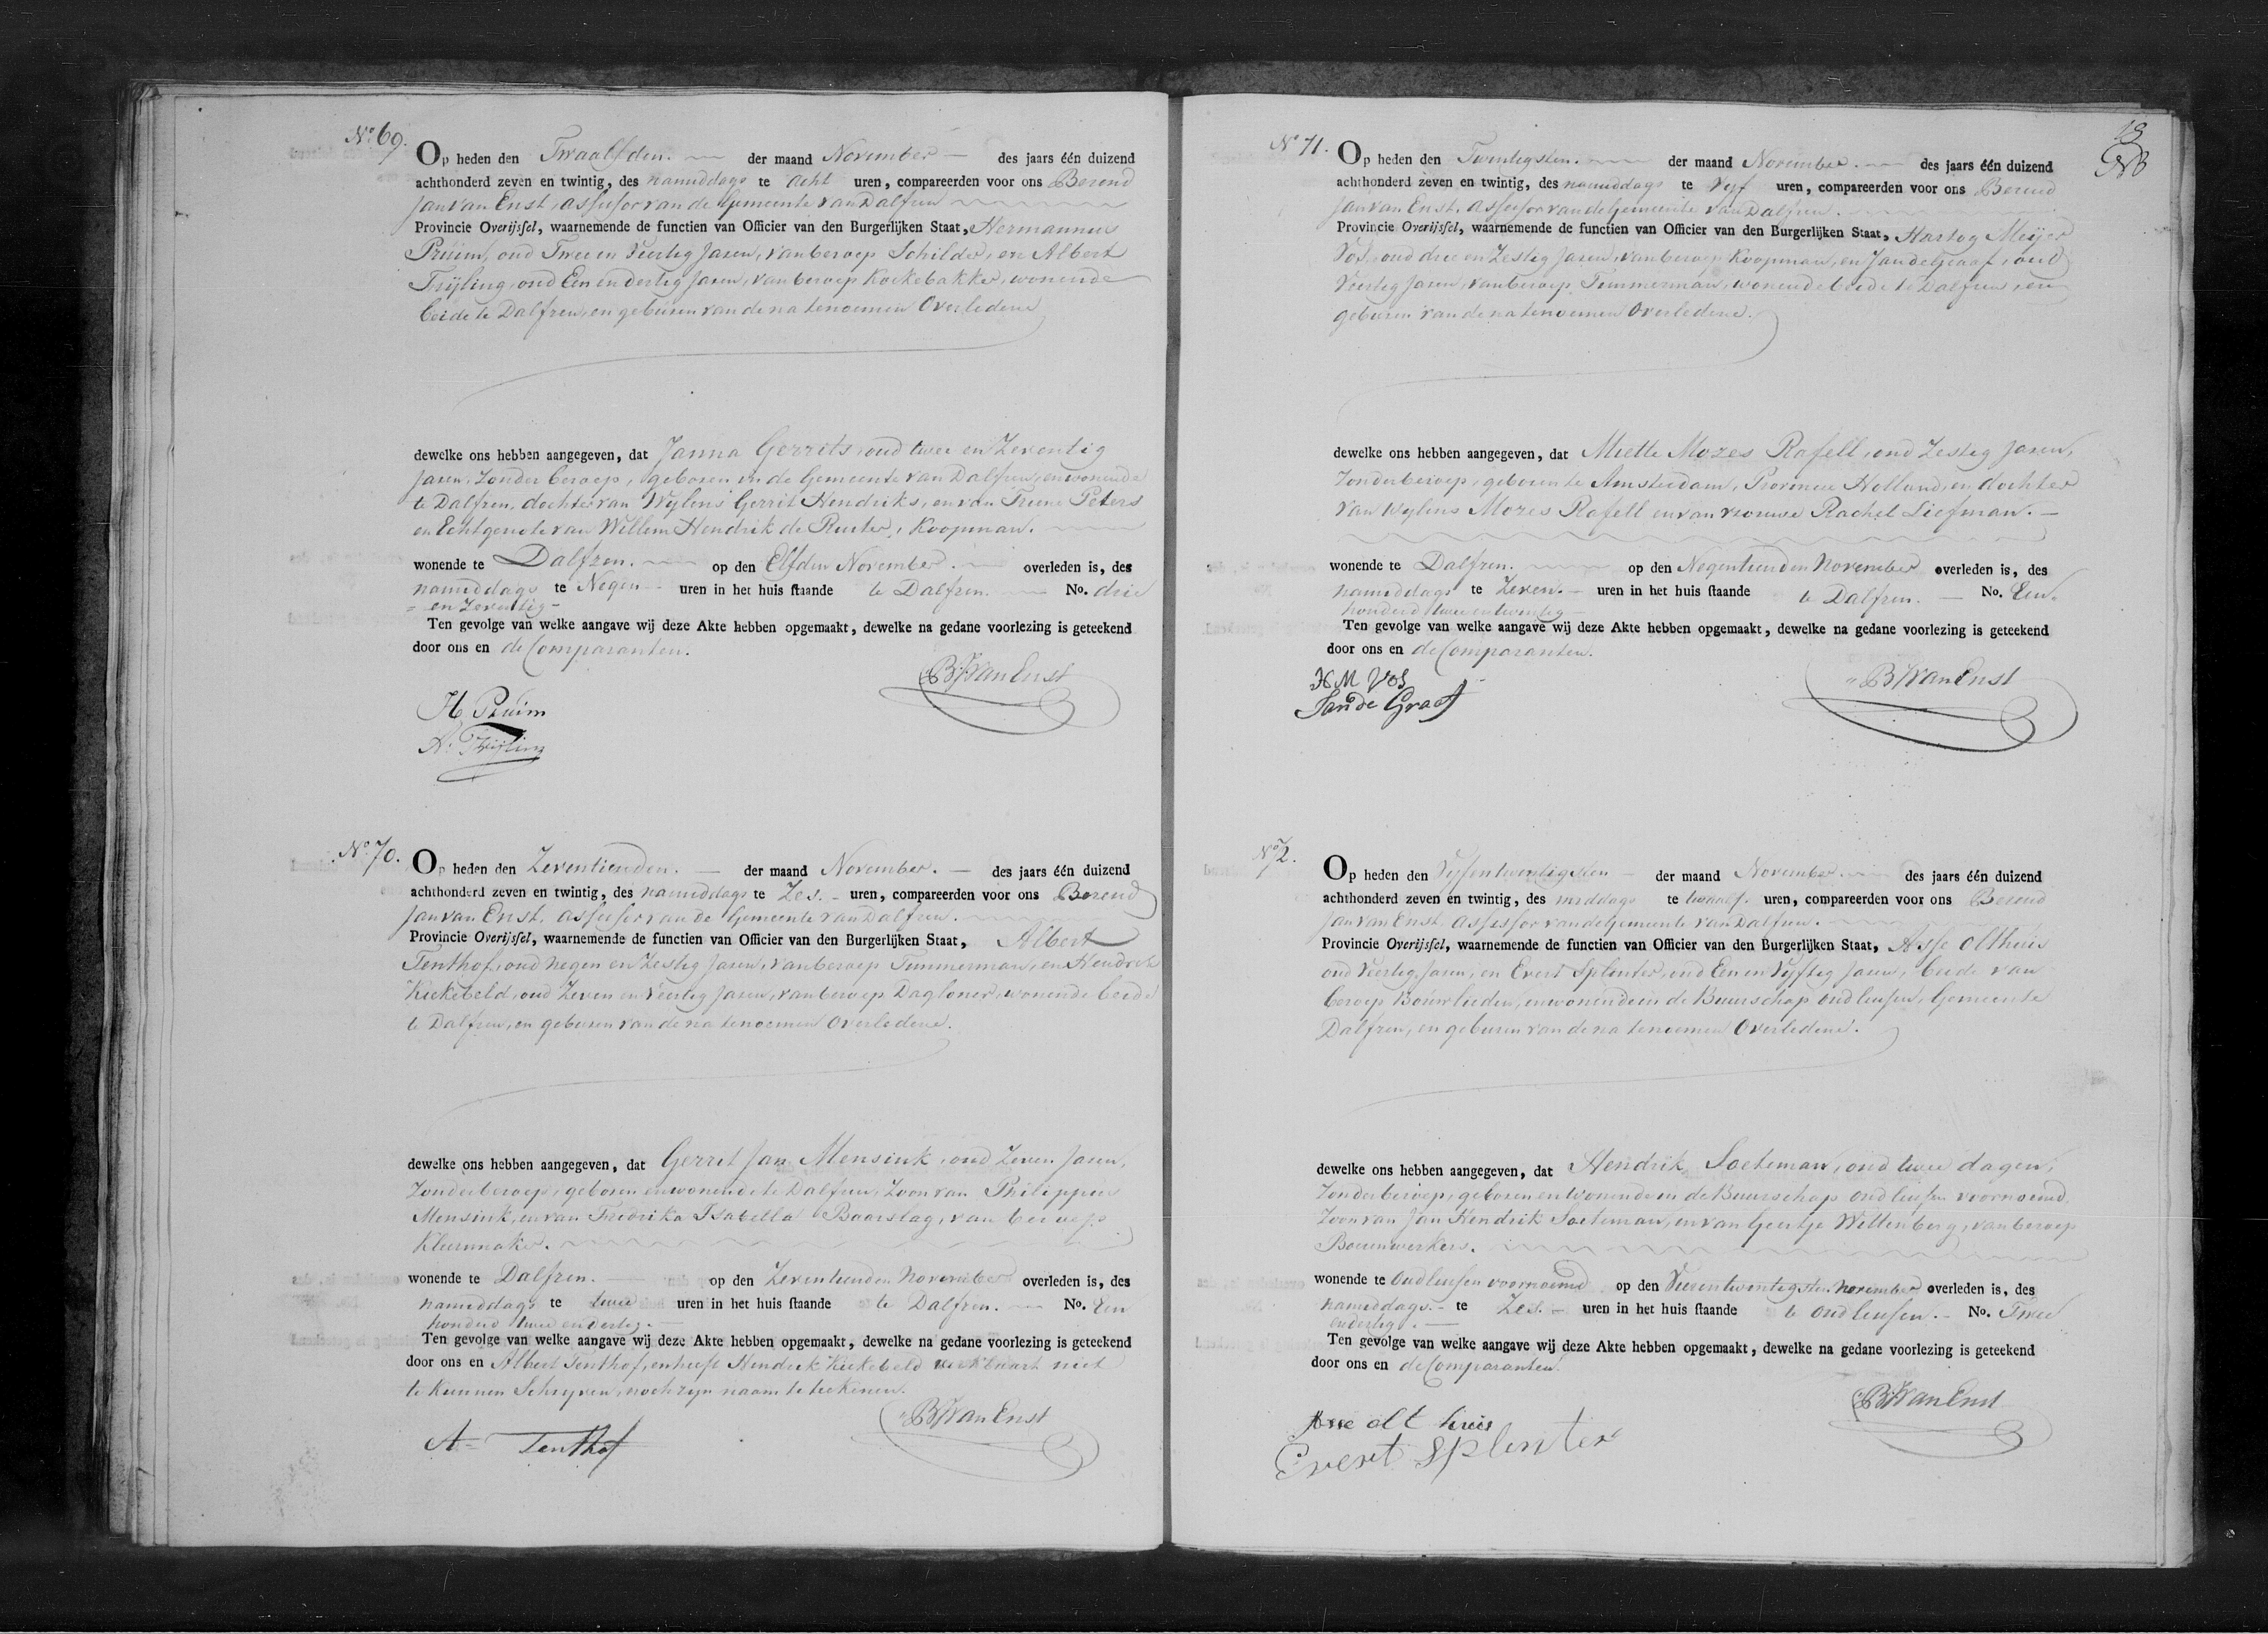 No. 69.
Op heden den Twaalfden. der maand November des jaars één duizend
achthonderd zeven en twintig, des namiddags te acht uren, compareerden voor ons Berend
Jan van Enst, assessor van de Gemeente van Dalfsen
Provincie Overijssel, waarnemende de functien van Officier van den Burgerlijken Staat, Hermannus
Pruim, oud Twee en Veertig Jaren, van beroep Schilder, en Albert
Trijling, oud Een en dertig Jaren, van beroep Koekebakker, wonende
beide te Dalfsen, en geburen van de na tenoemen Overledene
dewelke ons hebben aangegeven, dat Janna Gerrits, oud twee en Zeventig
Jaren, Zonder beroep, geboren in de Gemeente van Dalfsen, en wonende
te Dalfsen, dochter van Wylens Gerrit Hendriks, en van Triene Peters
en Echtgenote van Willem Hendrik de Ruiter, Koopman.
wonende te Dalfsen. op den Elfden November. overleden is, des
namiddags te Negen uren in het huis staande te Dalfsen. No. drie
= en Zeventig -
Ten gevolge van welke aangave wij deze Akte hebben opgemaakt, dewelke na gedane voorlezing is geteekend
door ons en de Comparanten.
BJ van Enst
H Pruim
A: Trijling
No. 70.
Op heden den Zeventienden. der maand November. des jaars één duizend
achthonderd zeven en twintig, des namiddags te Zes. uren, compareerden voor ons Berend
Jan van Enst, assessor van de Gemeente van Dalfsen.
Provincie Overijssel, waarnemende de functien van Officier van den Burgerlijken Staat, Albert
Tenthof, oud Negen en Zestig Jaren, van beroep Timmerman, en Hendrik
Kiekebeld, oud Zeven en Veertig Jaren, van beroep Dagloner, wonende beide
te Dalfsen, en geburen van de na tenoemen Overledene.
dewelke ons hebben aangegeven, dat Gerrit Jan Mensink, oud Zeven Jaren,
Zonder beroep, geboren en wonende te Dalfsen, Zoon van Philippus
Mensink, en van Fredrika Isabella Baarslag, van beroep
Kleermaker.
wonende te Dalfsen. op den Zeventienden November overleden is, des
namiddags te twee uren in het huis staande te Dalfsen. No. Een
honderd twee en dertig.
Ten gevolge van welke aangave wij deze Akte hebben opgemaakt, dewelke na gedane voorlezing is geteekend
door ons en Albert Tenthof, en heeft Hendrik Kiekebeld verklaart niet
te kunnen Schryven, noch zyn naam te teekenen.
BJ van Enst
A= Tenthof
No 71.
18
Op heden den Twintigsten. der maand November. des jaars één duizend
achthonderd zeven en twintig, des namiddags te Vyf uren, compareerden voor ons Berend
Jan van Enst, assessor van de Gemeente van Dalfsen.
Provincie Overijssel, waarnemende de functien van Officier van den Burgerlijken Staat, Hartog Meijer
Vos, oud drie en Zestig Jaren, van beroep Koopman, en Jan de Graaf, oud
Veertig Jaren, van beroep Timmerman, wonende beide te Dalfsen, en
geburen van de na tenoemen Overledene.
dewelke ons hebben aangegeven, dat Miette Mozes Rafell, oud Zestig Jaren,
Zonder beroep, geboren te Amsterdam, Provincie Holland, en dochter
van Wylens Mozes Rafell en van vrouwe Rachel Liefman.
wonende te Dalfsen. op den Negentienden November overleden is, des
namiddags te Zeven. uren in het huis staande te Dalfsen. No. Een
honderd twee en twintig
Ten gevolge van welke aangave wij deze Akte hebben opgemaakt, dewelke na gedane voorlezing is geteekend
door ons en de Comparanten.
BJ van Enst
H M Vos
Jan de Graaf
No 72.
Op heden den Vyfentwintigsten der maand November. des jaars één duizend
achthonderd zeven en twintig, des middags te twaalf. uren, compareerden voor ons Berend
Jan van Enst assessor van de Gemeente van Dalfsen.
Provincie Overijssel, waarnemende de functien van Officier van den Burgerlijken Staat, Asse Olthuis
oud Veertig Jaren, en Evert Splinter, oud Een en Vyftig Jaren, beide van
beroep Bouwlieden, en wonende in de Buurschap oud leusen, Gemeente
Dalfsen, en geburen van de na tenoemen Overledene.
dewelke ons hebben aangegeven, dat Hendrik Soeteman, oud twee dagen,
Zonder beroep, geboren en wonende in de Buurschap oud leusen voornoemd,
Zoon van Jan Hendrik Soeteman, en van Geertje Wittenberg, van beroep
Bouwwerkers.
wonende te Oudleusen voornoemd op den Vierentwintigsten November overleden is, des
namiddags. te Zes. uren in het huis staande te oud leusen. No. Twee
en dertig.
Ten gevolge van welke aangave wij deze Akte hebben opgemaakt, dewelke na gedane voorlezing is geteekend
door ons en de Comparanten.
BJ van Enst
Asse olt huis
Evert Splinter